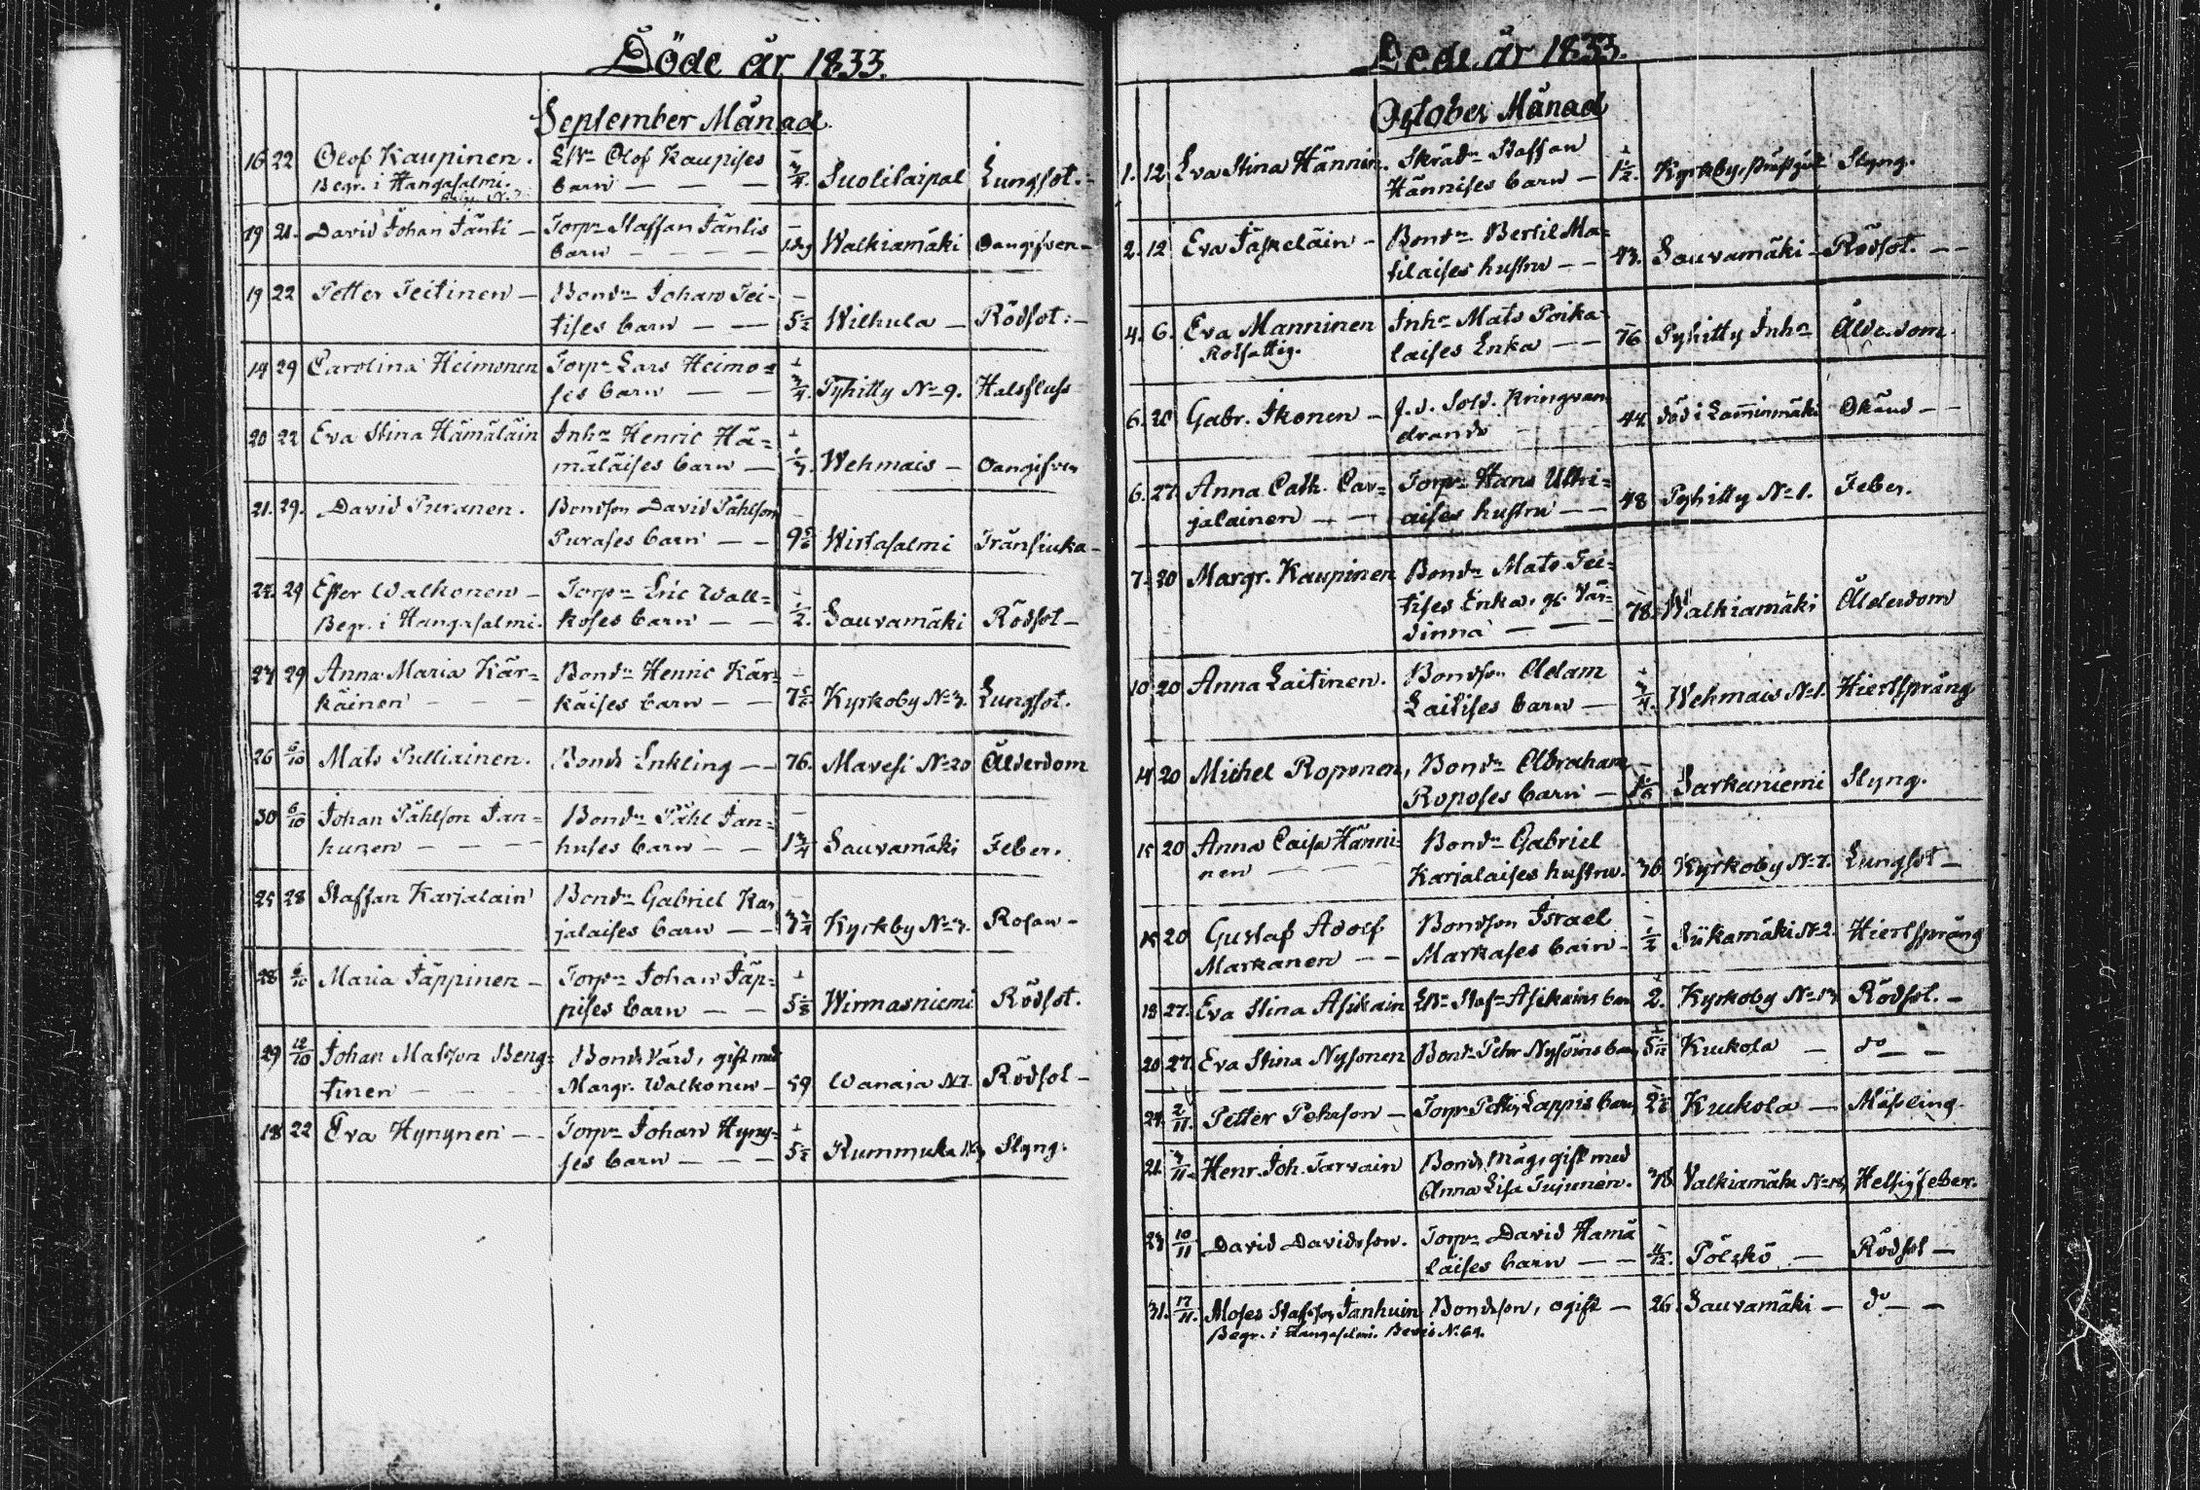 Döde år 1833.
September Månad
16 22 Olof Kaupinen. Olof Kaupises
Begr. i Hangasalmi. barn — — — 3/4. Suolilaipal Lungsot.
19 21. David Johan Jänti — Torpn Staffan Jäntis
barn — — — 1 dag Walkiamäki Oangifven —
19 22 Petter Teitinen — Bondn Johan Tei-
tises barn — — 5 1/2 Wilhula — Rödsot. —
19 29 Carolina Heimonen Torpn Lars Heimo=
ses barn — — 3/4. Pyhitty No 9. Halsfluss
20 22 Eva Stina Hämäläin Inhn Henric Hä=
mäläises barn — Wehmais — Oangifven
21. 29. David Puranen. Bondson David Påhlson
Purases barn — — Wirtasalmi Tränsiuka —
29 Ester Walkonen — Torpn Eric Walk=
Begr. i Hangasalmi. koses barn — — 1/2. Sauvamäki Rödsot —
24 29 Anna Maria Kär= Bondn Henric Kär=
käinen — — — käises barn — — Kyrkoby No 3. Lungsot.
26 5/10 Mats Pulliainen. Bonds Enkling — — 76. Mavesi No 20 Ålderdom
30 6/10 Johan Påhlson Jan= Bondn Påhl Jan=
hunen — — — huses barn — — 1 3/4 Sauvamäki Feber.
25 28 Staffan Karjalain Bondn Gabriel Kar
jalaises barn — — 3 3/4 Kyrkby No 7. Rosen —
28 6/10 Maria Jäppinen — Torpn Johan Jäp=
pises barn — — 5 5/8 Wirmasniemi Rödsot.
29 12/10 Johan Matsson Beng= Bonds Vård, gift med
tinen — — — Margr. Walkonen — 59 Wanaja No 7. Rödsot —
18 22 Eva Hynynen — — Torpn Johan Hyny=
ses barn — — — 5 1/2 Rummuka Styng.
Döde år 1833.
October Månad
1. 12 Eva Stina Hännin. Skrädn Staffan
Hännises barn — 1 1/2. Kyrkby, Styng.
2. 12 Eva Jäskeläin — Bondn Bertil Ma=
tilaises hustru — — 43. Sauvamäki — Rödsot. — —
4. 6. Eva Manninen Inhn Mats Poika=
Rotfattig. laises Enka — — 76 Pyhitty Inhn Ålderdom.
6. 20 Gabr. Ikonen — f. d. Sold. Kringvan
drande 44 död i Lamminmäki Okänd — —
6. 27. Anna Cath. Car= Torpn Hans Ukki=
jalainen — — aises hustru — — 48 Pyhitty No 1. Feber.
7. 20 Margr. Kaupinen Bondn Mats Tei=
tises Enka, gl. Vär=
dinna — — — 78. Walkiamäki Ålderdom
10 20 Anna Laitinen. Bondson Adam
Laitises barn — 3/4. Wehmais No 1. Hiertsprång
14 20 Michel Roponen, Bondn Abraham
Roposes barn — Sarkaniemi Styng.
15 20 Anna Caisa Hänni= Bondn Gabriel
nen — — Karjalaises hustru. 36. Kyrkoby No 7. Lungsot —
15 20 Gustaf Adolf Bondson Israel
Markanen — — Markases barn — 1/2 Sükamäki No 2. Hiertsprång
18 27. Eva Stina Asikain Asikains barn 2. Kyrkoby No 13 Rödsot. —
20 27. Eva Stina Nysonen Bondn Petr Nysöins barn Kukola — do — —
24. 2/11. Petter Pehrson — Torpn Petter Lappis barn Kukola — Mässling.
21. 3/11. Henr. Joh. Tarvain Bonds Måg, gift med
Anna Lisa Tujunen. 38 Valkiamäki No 18, Hetsig feber.
23 10/11 David Davidsson. Torpn David Hämä
läises barn — — 11/12. Pölzkö — Rödsot —
31. 17/11. Moses Stafson Janhuin Bondson, ogift — 26. Sauvamäki — do — —
Begr. i Hangasalmi. Bevis N. 64.